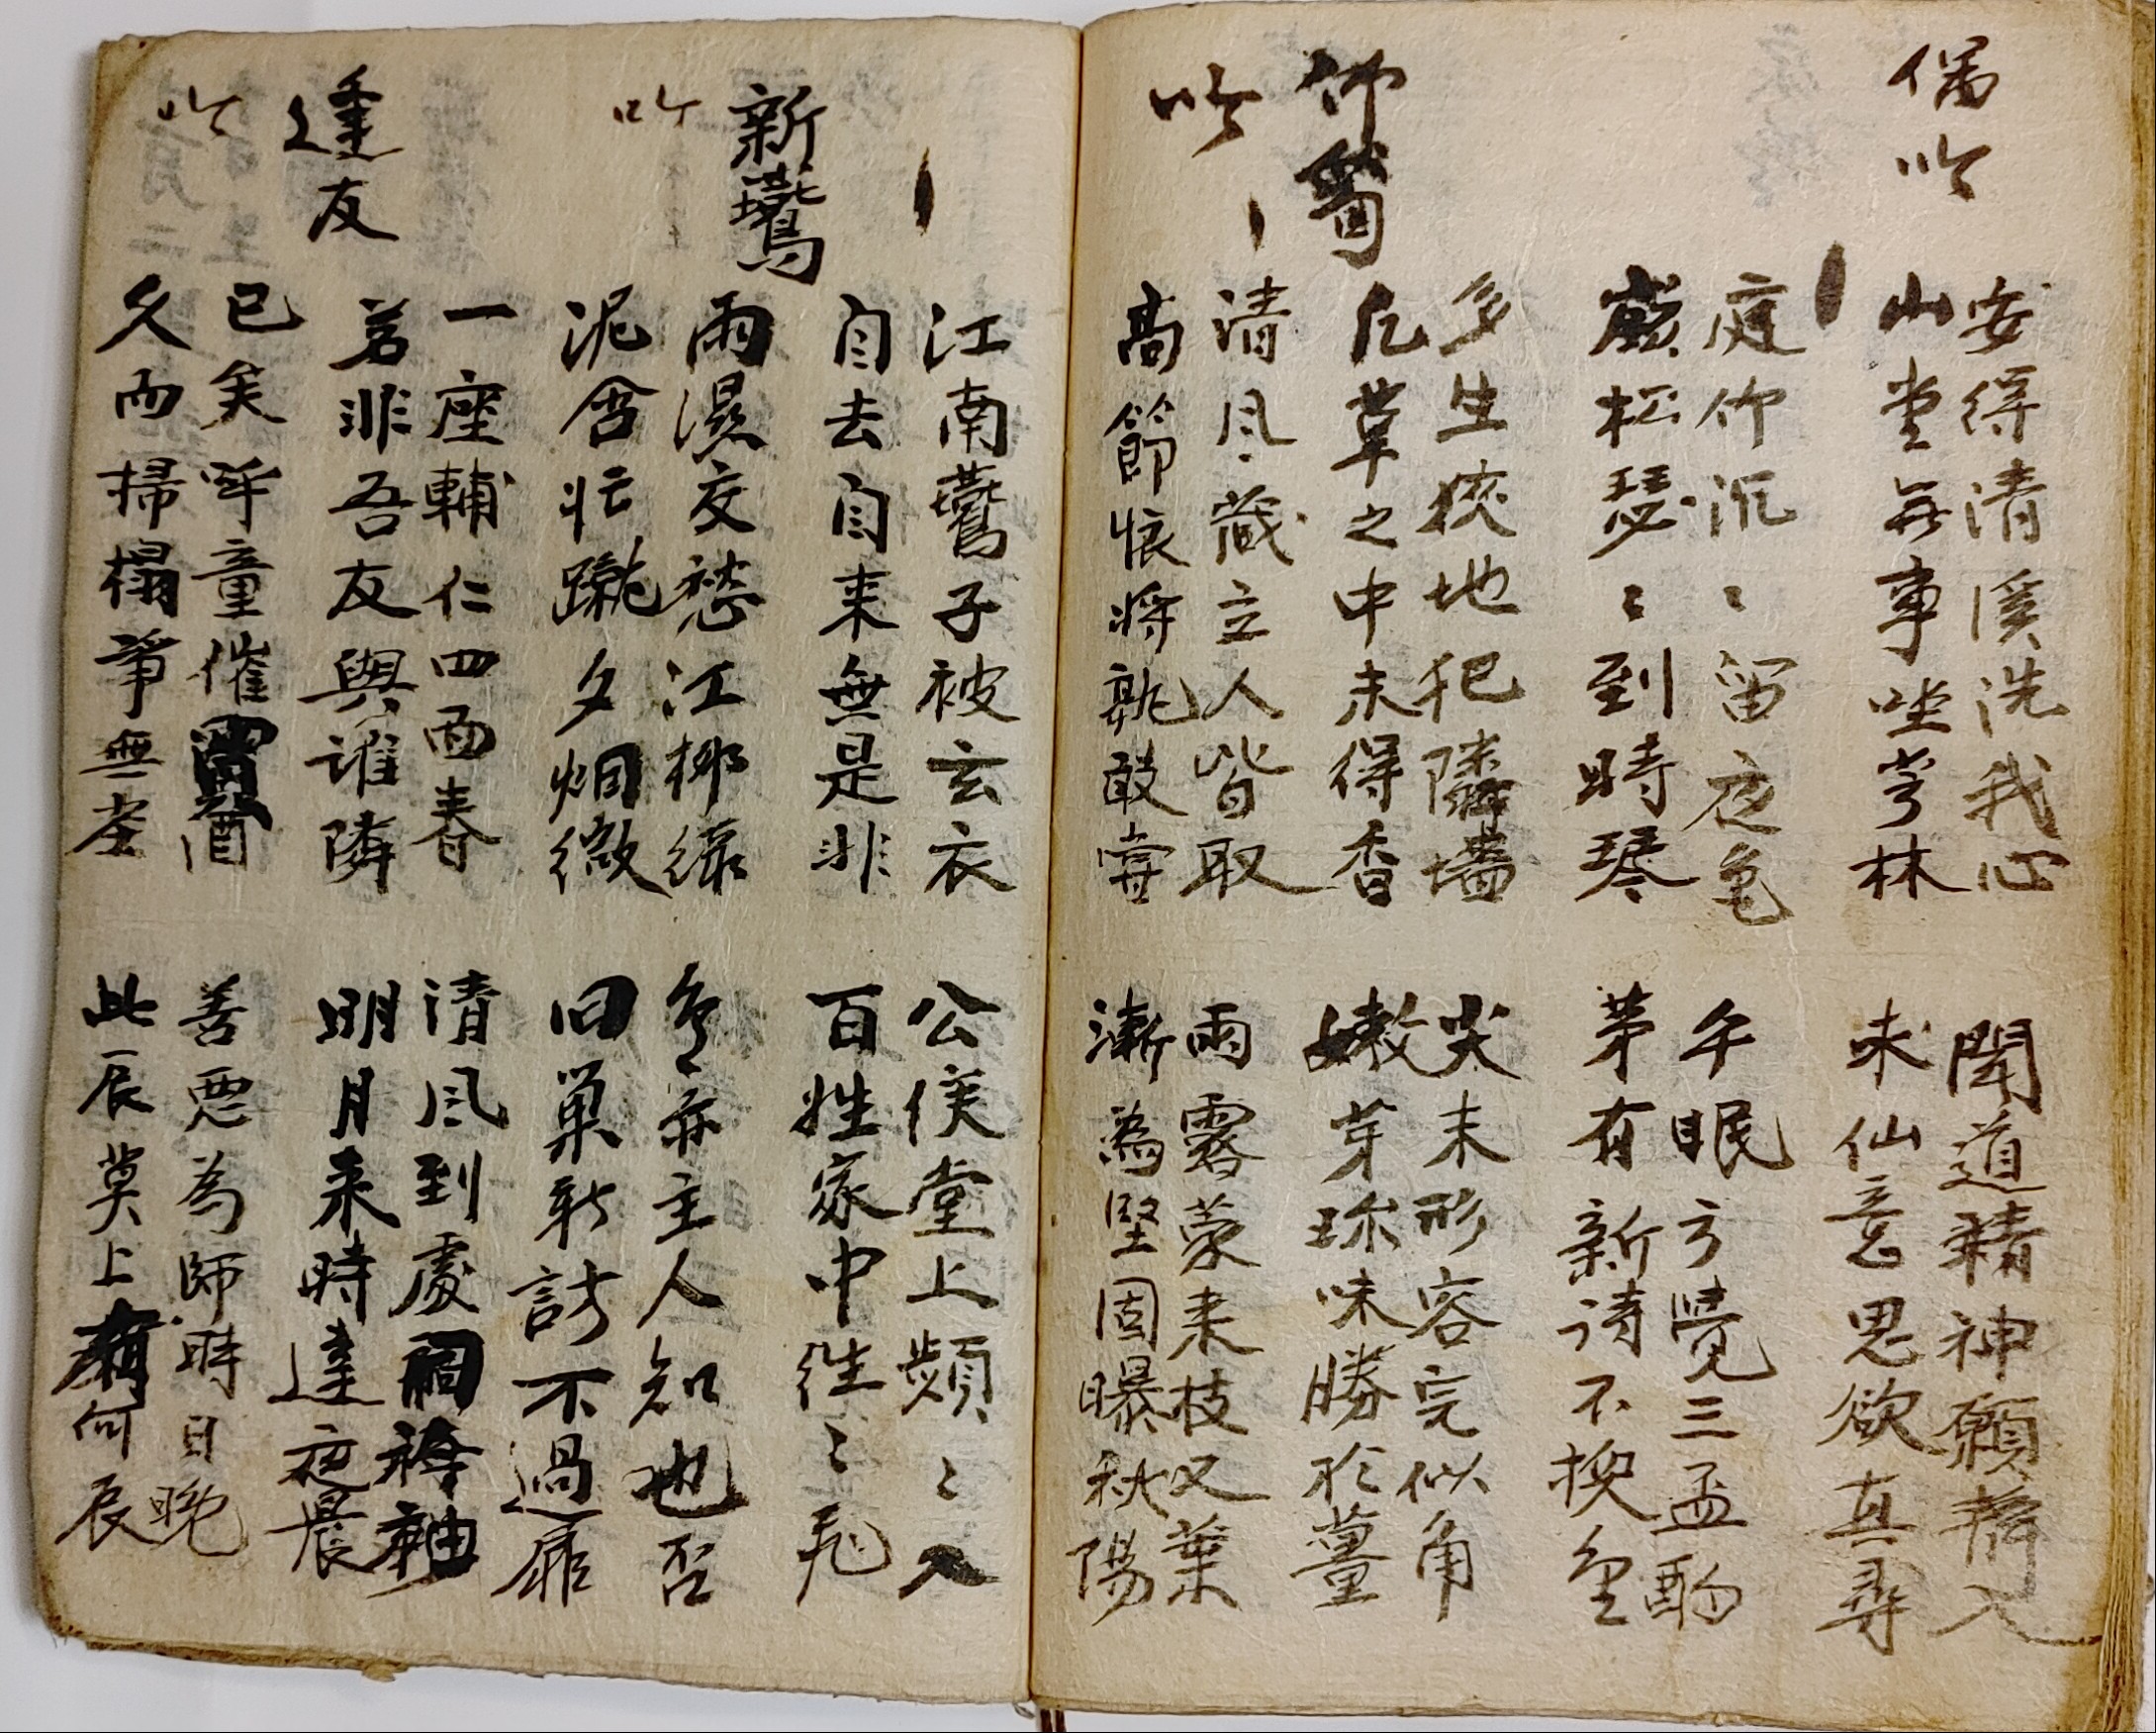 偶吟
安得清溪洗我心
聞道精神願靜入
山堂無事坐林
未仙意思欲真尋
庭竹沉〻留夜色
午眠方覺三盃酌
巖松瑟〻到時琴
茅有新詩不換金
竹筍
吟
多生狹地犯隣墻
尖末形容完似角
凡草之中未得香
嫩芽珎味勝於薑
清風藏立人皆取
雨露蒙来枝又葉
高節恨将孰敢甞
漸為堅固曝秋陽
新鷰
吟
江南鷰子被玄衣
公侯堂上頻〻入
自去自来無是非
百姓家中往〻飛
雨濕交愁江柳緑
亦主人知也否
泥含忙蹴夕烟微
旧巢新訪不過扉
逢友
吟
一座輔仁四面春
清風到處
若非吾友與誰隣
明月来時達夜晨
已矣呼童催酒
善惡為師時日晩
久而掃榻爭無塵
此辰莫上何辰